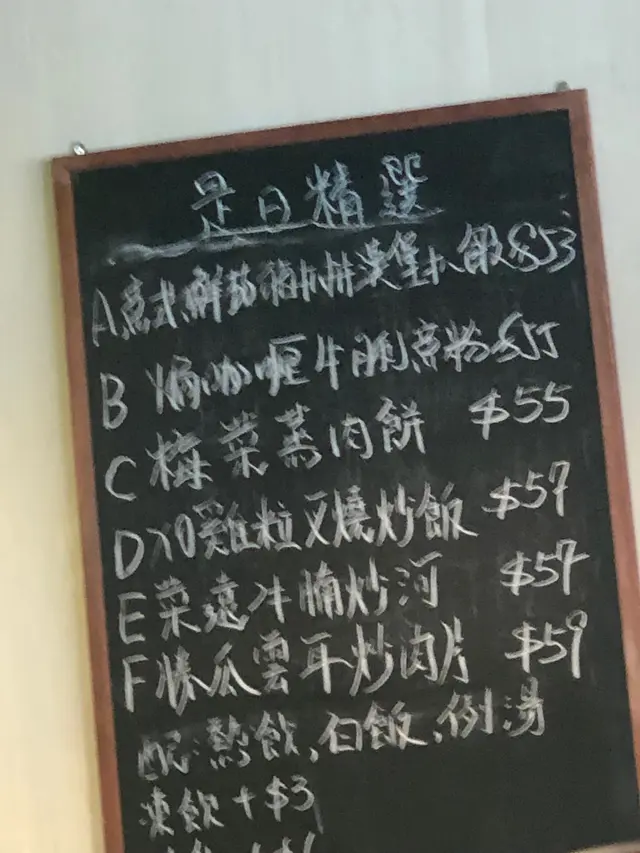 是日精選
A 意式鮮茄豬扒拼漢堡扒飯 $53
B 焗咖喱牛脷意粉 $55
C 梅菜蒸肉餅 $55
D 咸雞粒叉燒炒飯 $57
E 菜遠牛腩炒河 $57
F 勝瓜雲耳炒肉片 $59
配:熱飲、白飯、例湯
凍飲+$3